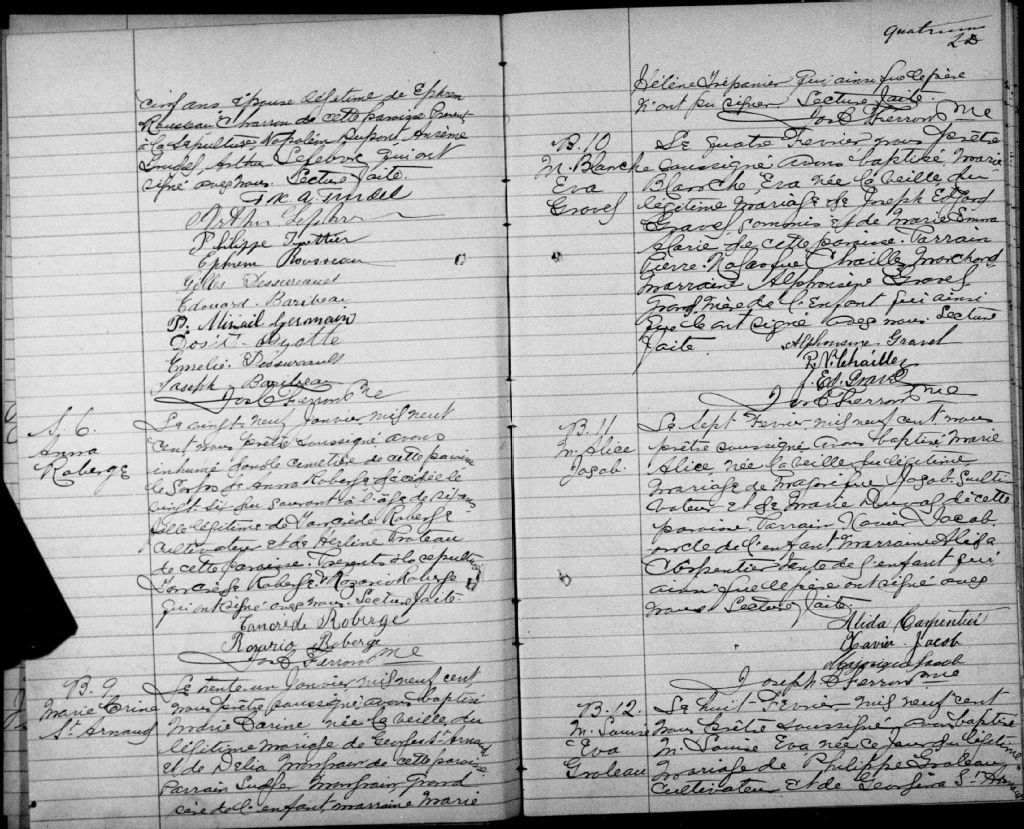 cinq ans épouse légitime de Ephrem
Rousseau Charron de cette paroisse Présents
à la sépulture Napoléon Dupont, Arsème
Trudel, Arthur Lefebvre qui ont
signé avec nous. Lecture faite.
A. Trudel
Arthur Lefebvre
Philippe Trottier
Ephrem Rousseau
Gilles Dessureault
Edouard Baribeau
Mizaël Germain
Dosit Ayotte
Emélie Dessureault
Joseph Baribeau
Jos C Ferron Ptre
S. 6.
Anna
Roberge
Le vingt neuf Janvier mil neuf
cent nous Prêtre soussigné avons
inhumé dans le cemetière de cette paroisse
le Corps de Anna Roberge décédée le
vingt six du courant à l'âge de six ans
fille légitime de Tancrède Roberge
Cultivateur et de Herline Groleau
de cette paroisse. Présents à la sépulture
Tancrède Roberge, Rozario Roberge
qui ont signé avec nous. Lecture faite.
Tancrède Roberge
Rozario Roberge
Jos C Ferron Ptre
B. 9
Marie
St Arnaud
Le trente-un Janvier mil neuf cent
nous Prêtre soussigné avons baptisé
Marie Darine née la veille du
légitime mariage de Georges St Arnaud
et de Délia Mongrain de cette paroisse
Parrain Mongrain Grand
père de l'enfant, marraine Marie
2d
Hélène Trépanier qui ainsi que le père
n'ont pu signer Lecture faite.
Jos C Ferron Ptre
B. 10
M. Blanche
Eva
Gravel
Le quatre Fevrier nous prêtre
soussigné avons baptisé Marie
Blanche Eva née la veille du
légitime mariage de Joseph Edouard
Gravel, commis et de Marie Emma
Alarie de cette paroisse. Parrain
Pierre Chaillez Marchand
Marraine Alphonsine Gravel
Grand Mère de l'Enfant qui ainsi
que le ont signé avec nous Lecture
faite.
Alphonsine Gravel
P. N. Chaillez
J. Ed. Gravel
Jos C Ferron Ptre
B. 11
M. Alice
Jacob
Le Sept Fevrier mil neuf cent nous
prêtre soussigné avons baptisé Marie
Alice née la veille du légitime
mariage de Majorique Jacob Culti
vateur et de Marie Duval de cette
paroisse Parrain Xavier Jacob
oncle de l'enfant, Marraine Alida
Carpentier tante de l'enfant qui
ainsi que le père ont signé avec
nous Lecture faite.
Alida Carpentier
Xavier Jacob
Majorique Jacob
Joseph C Ferron Ptre
B. 12.
M. Louise
Eva
Groleau
Le huit Fevrier mil neuf cent
nous Prêtre soussigné avons baptisé
M. Louise Eva née ce jour du légitime
mariage de Philippe Groleau
Cultivateur et de Géorgina St Arnaud